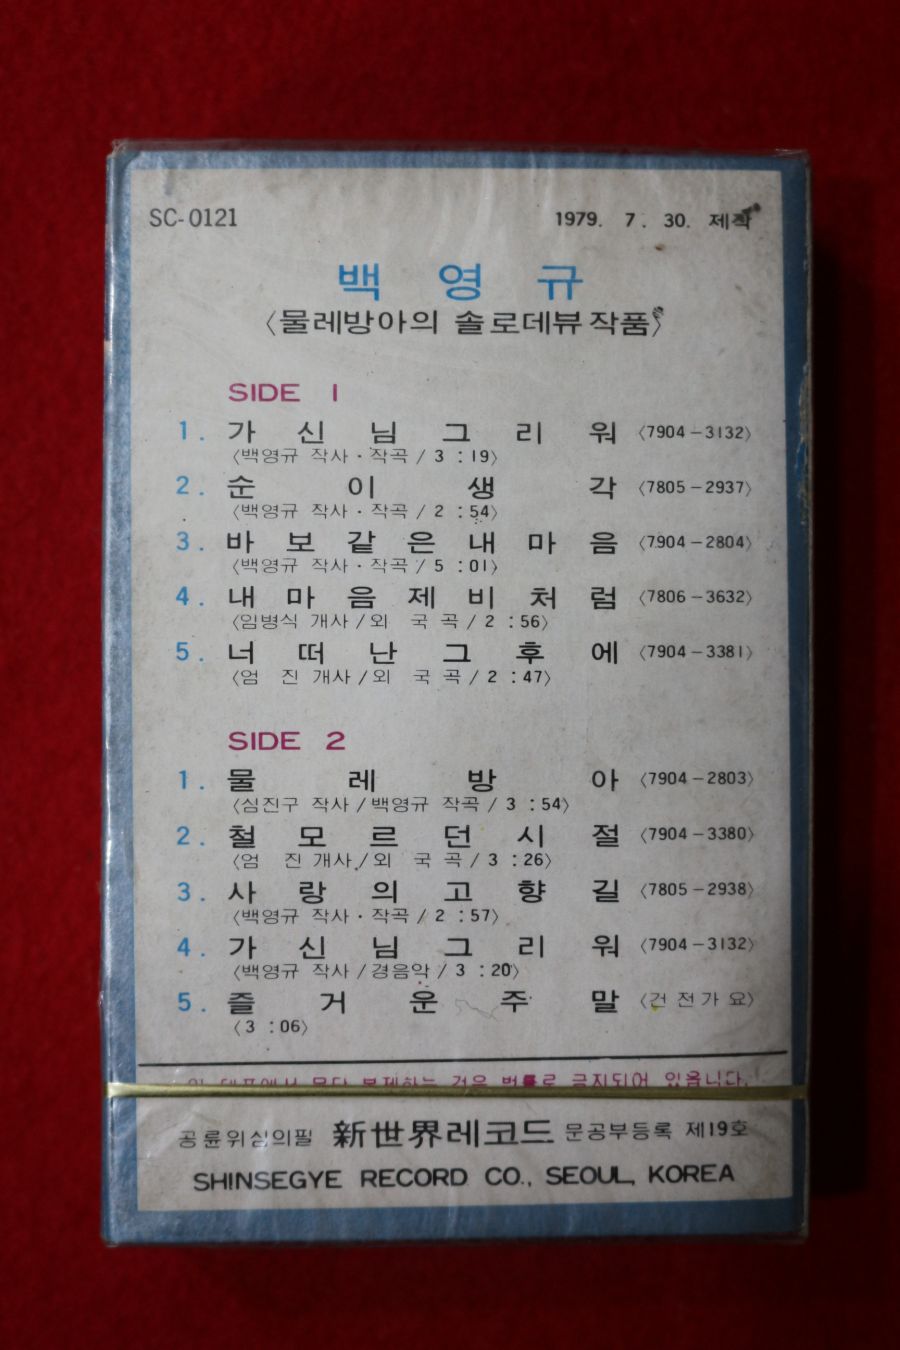 SC-0121
1979. 7. 30. 제작
백 영 규
〈물레방아의 솔로데뷰작품〉
SIDE 1
1. 가 신 님 그 리 워 〈7904-3132〉
〈백영규 작사·작곡/3:19〉
2. 순 이 생 각 〈7805-2937〉
〈백영규 작사·작곡/2:54〉
3. 바 보 같 은 내 마 음 〈7904-2804〉
〈백영규 작사·작곡/5:01〉
4. 내 마 음 제 비 처 럼 〈7806-3632〉
〈임병식 개사/외 국 곡/2:56〉
5. 너 떠 난 그 후 에 〈7904-3381〉
〈엄 진 개사/외 국 곡/2:47〉
SIDE 2
1. 물 레 방 아 〈7904-2803〉
〈심진구 작사/백영규 작곡/3:54〉
2. 철 모 르 던 시 절 〈7904-3380〉
〈엄 진 개사/외 국 곡/3:26〉
3. 사 랑 의 고 향 길 〈7805-2938〉
〈백영규 작사·작곡/2:57〉
4. 가 신 님 그 리 워 〈7904-3132〉
〈백영규 작사/경음악/3:20〉
5. 즐 거 운 주 말 〈건 전 가 요〉
〈3:06〉
이 테프에서 무단 복제하는 것은 법률로 금지되어 있읍니다.
공륜위심의필 新世界레코드 문공부등록 제19호
SHINSEGYE RECORD CO., SEOUL, KOREA